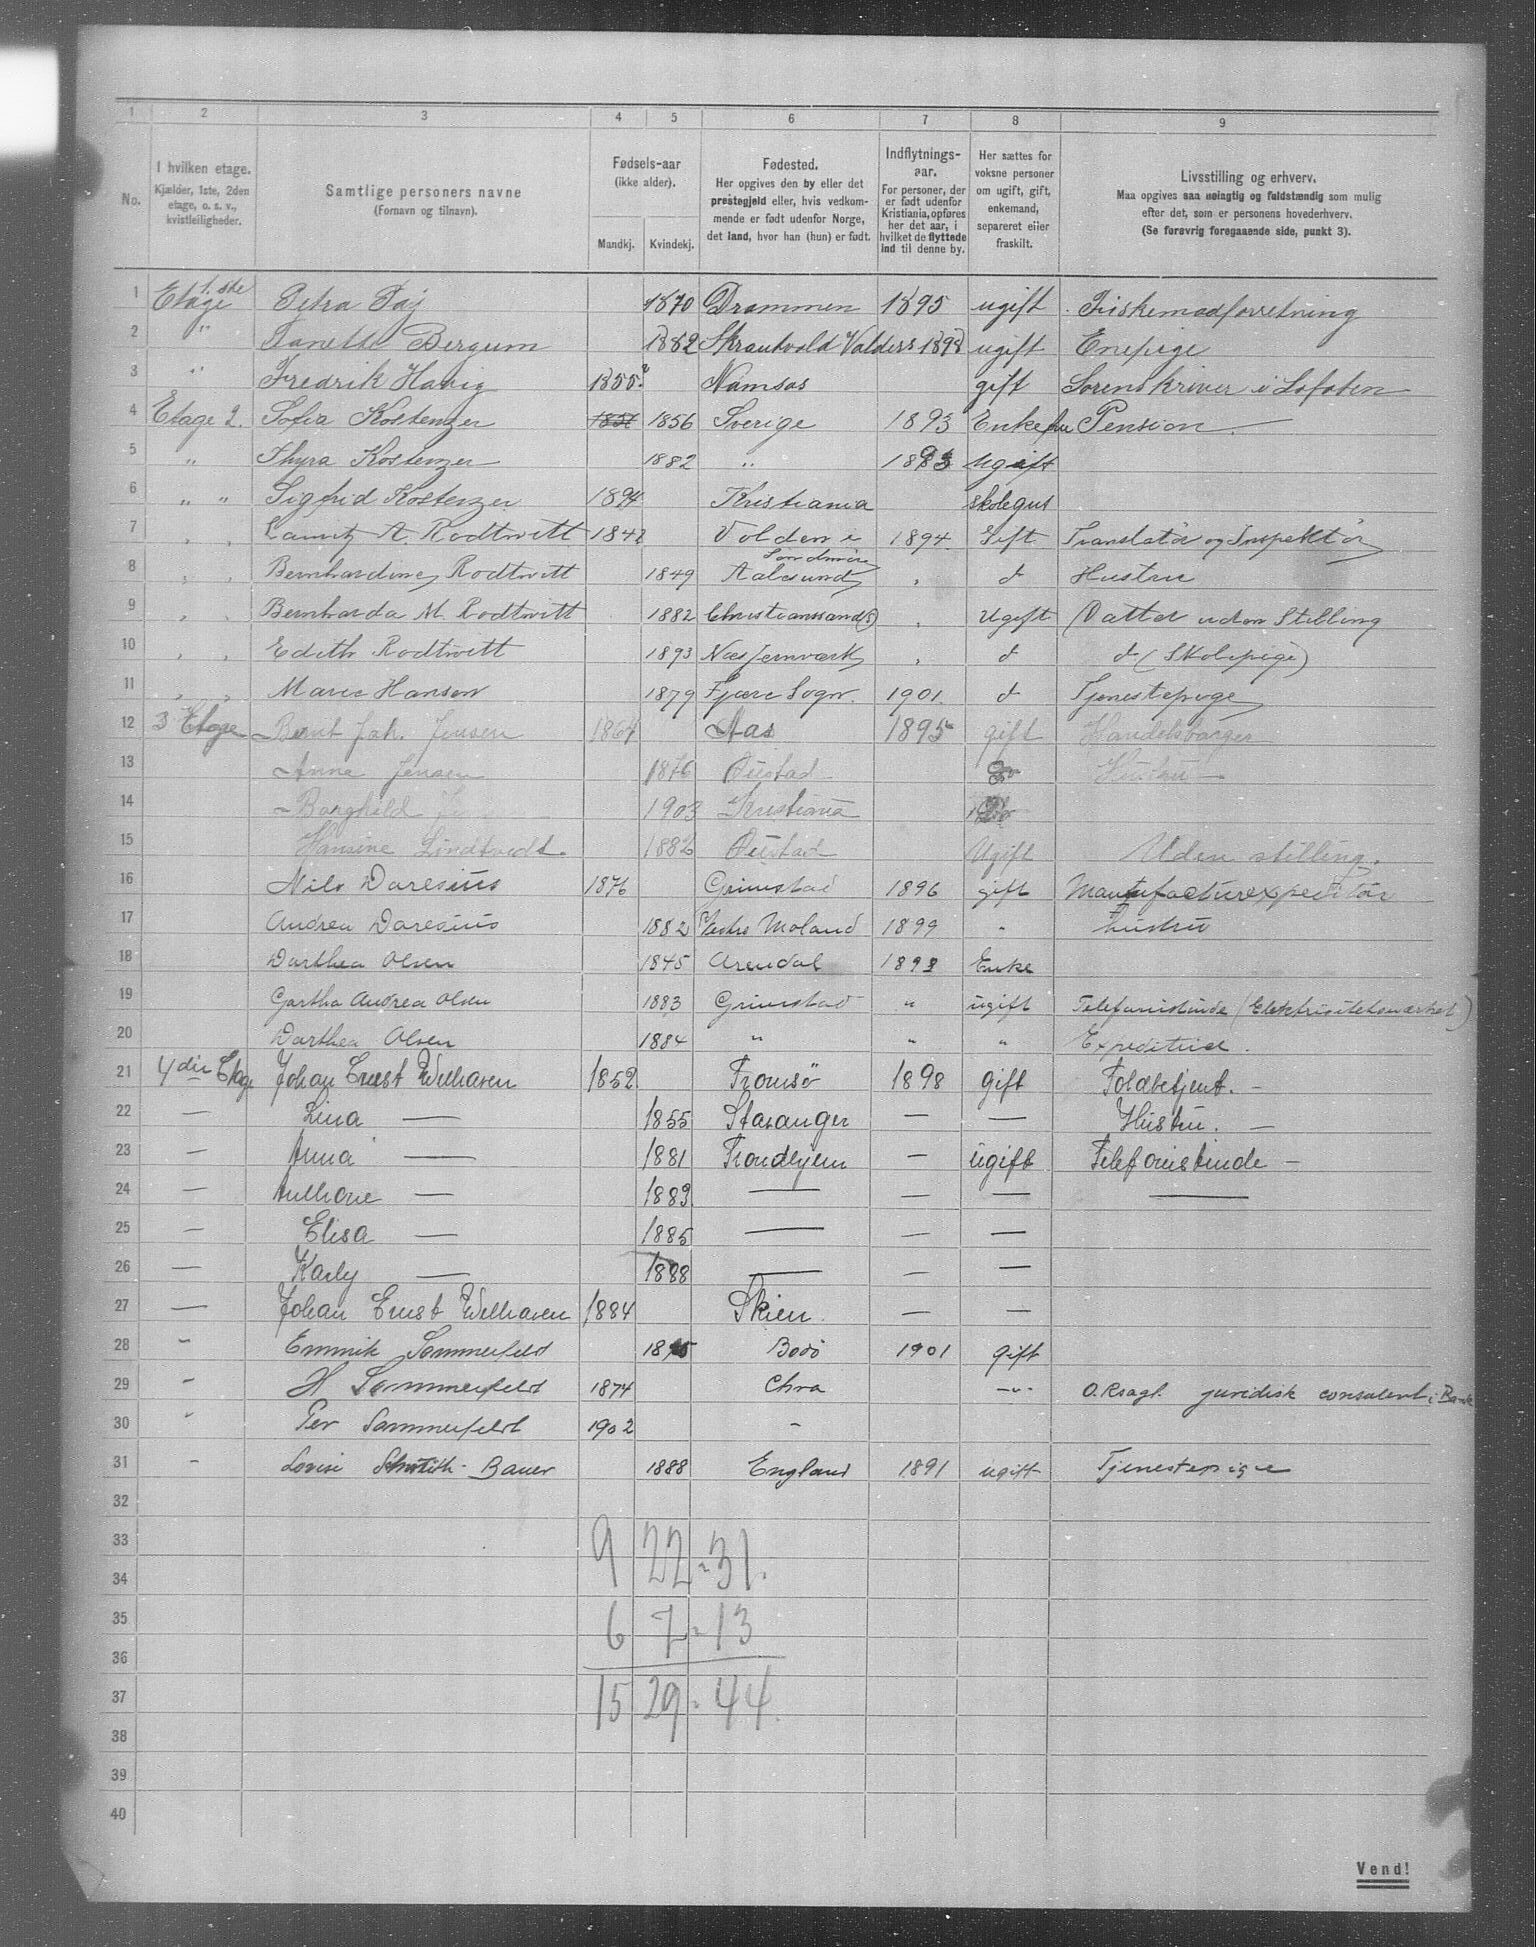 1 2 3 4 5 6 7 8 9
No. | I hvilken etage. Kjælder, 1ste, 2den etage, o. s. v., kvistleiligheder. | Samtlige personers navne (Fornavn og tilnavn). | Fødsels-aar (ikke alder). Mandkj. Kvindekj. | Fødested. Her opgives den by eller det prestegjeld eller, hvis vedkommende er født udenfor Norge, det land, hvor han (hun) er født. | Indflytnings-aar. For personer, der er født udenfor Kristiania, opføres her det aar, i hvilket de flyttede ind til denne by. | Her sættes for voksne personer om ugift, gift, enkemand, separeret eller fraskilt. | Livsstilling og erhverv. Maa opgives saa nøiagtig og fuldstændig som mulig efter det, som er personens hovederhverv. (Se forøvrig foregaaende side, punkt 3).
1 Etage 1.ste Petra Faj 1870 Drammen 1895 ugift Fiskemadforretning
2 " Fanette Bergum 1882 Skrautvold Valders 1898 ugift Enepige
3 " Fredrik Havig 1855? Namsos gift Sorenskriver i Lofoten
4 Etage 2. Sofia Kostenzer 1856 1856 Sverige 1893 Enkefru Pension
5 " Thyra Kostenzer 1882 " 1893 Ugift
6 " " Sigfrid Kostenzer 1894 Kristiania skolegut
7 " " Lauritz A. Rodtwitt 1842 Volden i Søndmøre 1894. Gift Translatør og Inspektør
8 " " Bernhardine Rodtwitt 1849 Aalesund " d Hustru
9 " " Bernharda M. Rodtwitt 1882 Christianssand (S) " Ugift Datter uden Stilling
10 " " Edith Rodtwitt 1893 Næs Jernværk " d d (Skolepige)
11 " " Marie Hansen 1879 Fjære Sogn 1901. d Tjenestepige
12 3 Etage Bernt Joh. Jensen 1864 Aas 1895 gift Handelsborger
13 Anna Jensen 1876 Øiestad Do Hustru
14 Borghild 1903 Kristiania
15 Hansine Lindtvedt 1882 Øiestad Ugift Uden stilling.
16 Nils Daresius 1876 Grimstad 1896 gift Manufacturexpeditør
17 Andrea Daresius 1882 Vestre Moland 1899 " hustru
18 Darthea Olsen 1845 Arendal 1898 Enke
19 Gartha Andrea Olsen 1883 Grimstad " ugift Telefonistinde (Elektrisitetsværket)
20 Darthea Olsen 1884 " " " Expeditrice.
21 4die Etage Johan Ernst Welhaven 1852 Tromsø 1898 gift Toldbetjent. —
22 — Lina — 1855 Stavanger — — Hustru. —
23 — Anna — 1881 Trondhjem — ugift Telefonistinde —
24 — — 1883 — — — —
25 — Elisa — 1885 — — —
26 — Karly — 1888 — — —
27 — Johan Ernst Welhaven 1884 Skien — —
28 " Emmik Sommerfeldt Bodø 1901 gift
29 " H Sommerfeldt 1874 Chra —"— O.Rsagf. juridisk consulent i Bank
30 " Per Sommerfeldt 1902 "
31 " Lovise Smith-Bauer 1888 England 1891 ugift Tjenestepige
32
33 9 22 - 31.
34
35 6 7 - 13
36
37 15 29 - 44.
38
39
40
Vend!